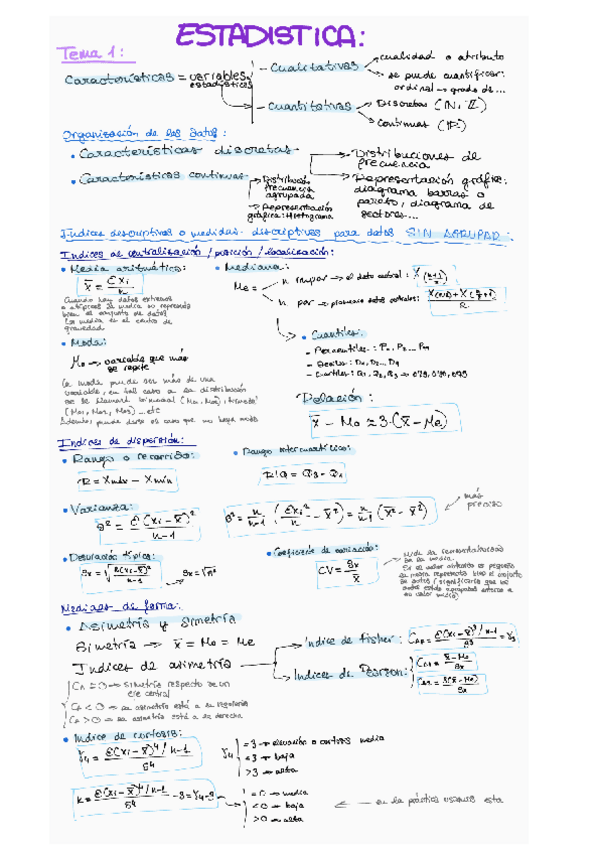 ESTADISTICA:
Tema 1:
Características = variables estadísticas
- Cualitativas
cualidad o atributo
se puede cuantificar:
ordinal → grado de...
- Cuantitativas
Discretas (N, Z)
Continuas (R)
Organización de los datos:
• Características discretas
Distribuciones de frecuencia
Representación gráfica:
diagrama barras o
pareto, diagrama de
sectores...
• Características continuas
Distribución
frecuencia
agrupada
Representación
gráfica: Histograma
Índices descriptivos o medidas descriptivas para datos SIN AGRUPAR:
Indices de centralización / posición / localización:
• Media aritmética:
x̄ = Σxi / n
Cuando hay datos extremos
o atípicos la media no representa
bien el conjunto de datos
La media es el centro de
gravedad
• Mediana:
Me =
n impar → el dato central: X((n+1)/2)
n par → promedio datos centrales: (X(n/2) + X(n/2 + 1)) / 2
• Moda:
Mo → variable que más
se repite
La moda puede ser más de una
variable, en tal caso a la distribución
se le llamará bimodal (Mo1, Mo2), trimodal
(Mo1, Mo2, Mo3)... etc
puede darse el caso que no haya moda
• Cuantiles:
- Percentiles: P1, P2... P99
- Deciles: D1, D2... D9
- Cuartiles: Q1, Q2, Q3 →
Relación:
x̄ - Mo ≈ 3·(x̄ - Me)
Indices de dispersión:
• Rango o recorrido:
R = Xmáx - Xmín
• Rango intercuartílico:
RIQ = Q3 - Q1
• Varianza:
s² = Σ(xi - x̄)² / n-1
s² = n/n-1 (Σxi²/n - x̄²) = n/n-1 (x̄² - x̄²)
más
preciso
• Desviación típica:
sx = √(Σ(xi - x̄)² / n-1)
sx = √s²
• Coeficiente de variación:
CV = sx / x̄
Mide la representatividad
de la media.
Si el valor obtenido es pequeño
la media representa bien el conjunto
de datos (significaría que los
datos están agrupados entorno a
su valor medio)
Medidas de forma:
• Asimetría y Simetría
Simetría → x̄ = Mo = Me
Indices de asimetría
Índice de Fisher: CAF = Σ(xi - x̄)³ / n-1 / s³ = γ3
Indices de Pearson:
CAP = x̄ - Mo / sx
CAP = 3(x̄ - Me) / sx
CA = 0 → simetría respecto de un
eje central
CA < 0 → la asimetría está a la izquierda
CA > 0 → la asimetría está a la derecha
• Indice de curtosis:
γ4 = Σ(xi - x̄)⁴ / n-1 / s⁴
γ4
= 3 → elevación o curtosis media
< 3 → baja
> 3 → alta
k = Σ(xi - x̄)⁴ / n-1 / s⁴ - 3 = γ4 - 3
= 0 → media
< 0 → baja
> 0 → alta
en la práctica usamos esta